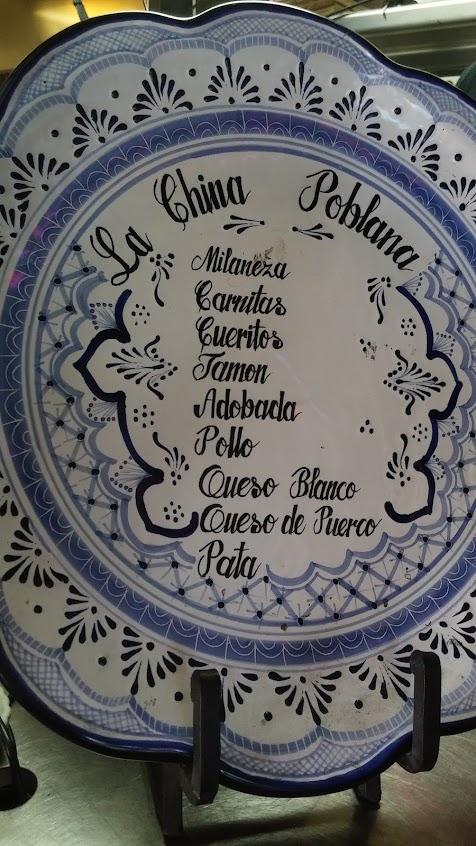 La China Poblana
Milaneza
Carnitas
Cueritos
Jamon
Adobada
Pollo
Queso Blanco
Queso de Puerco
Pata